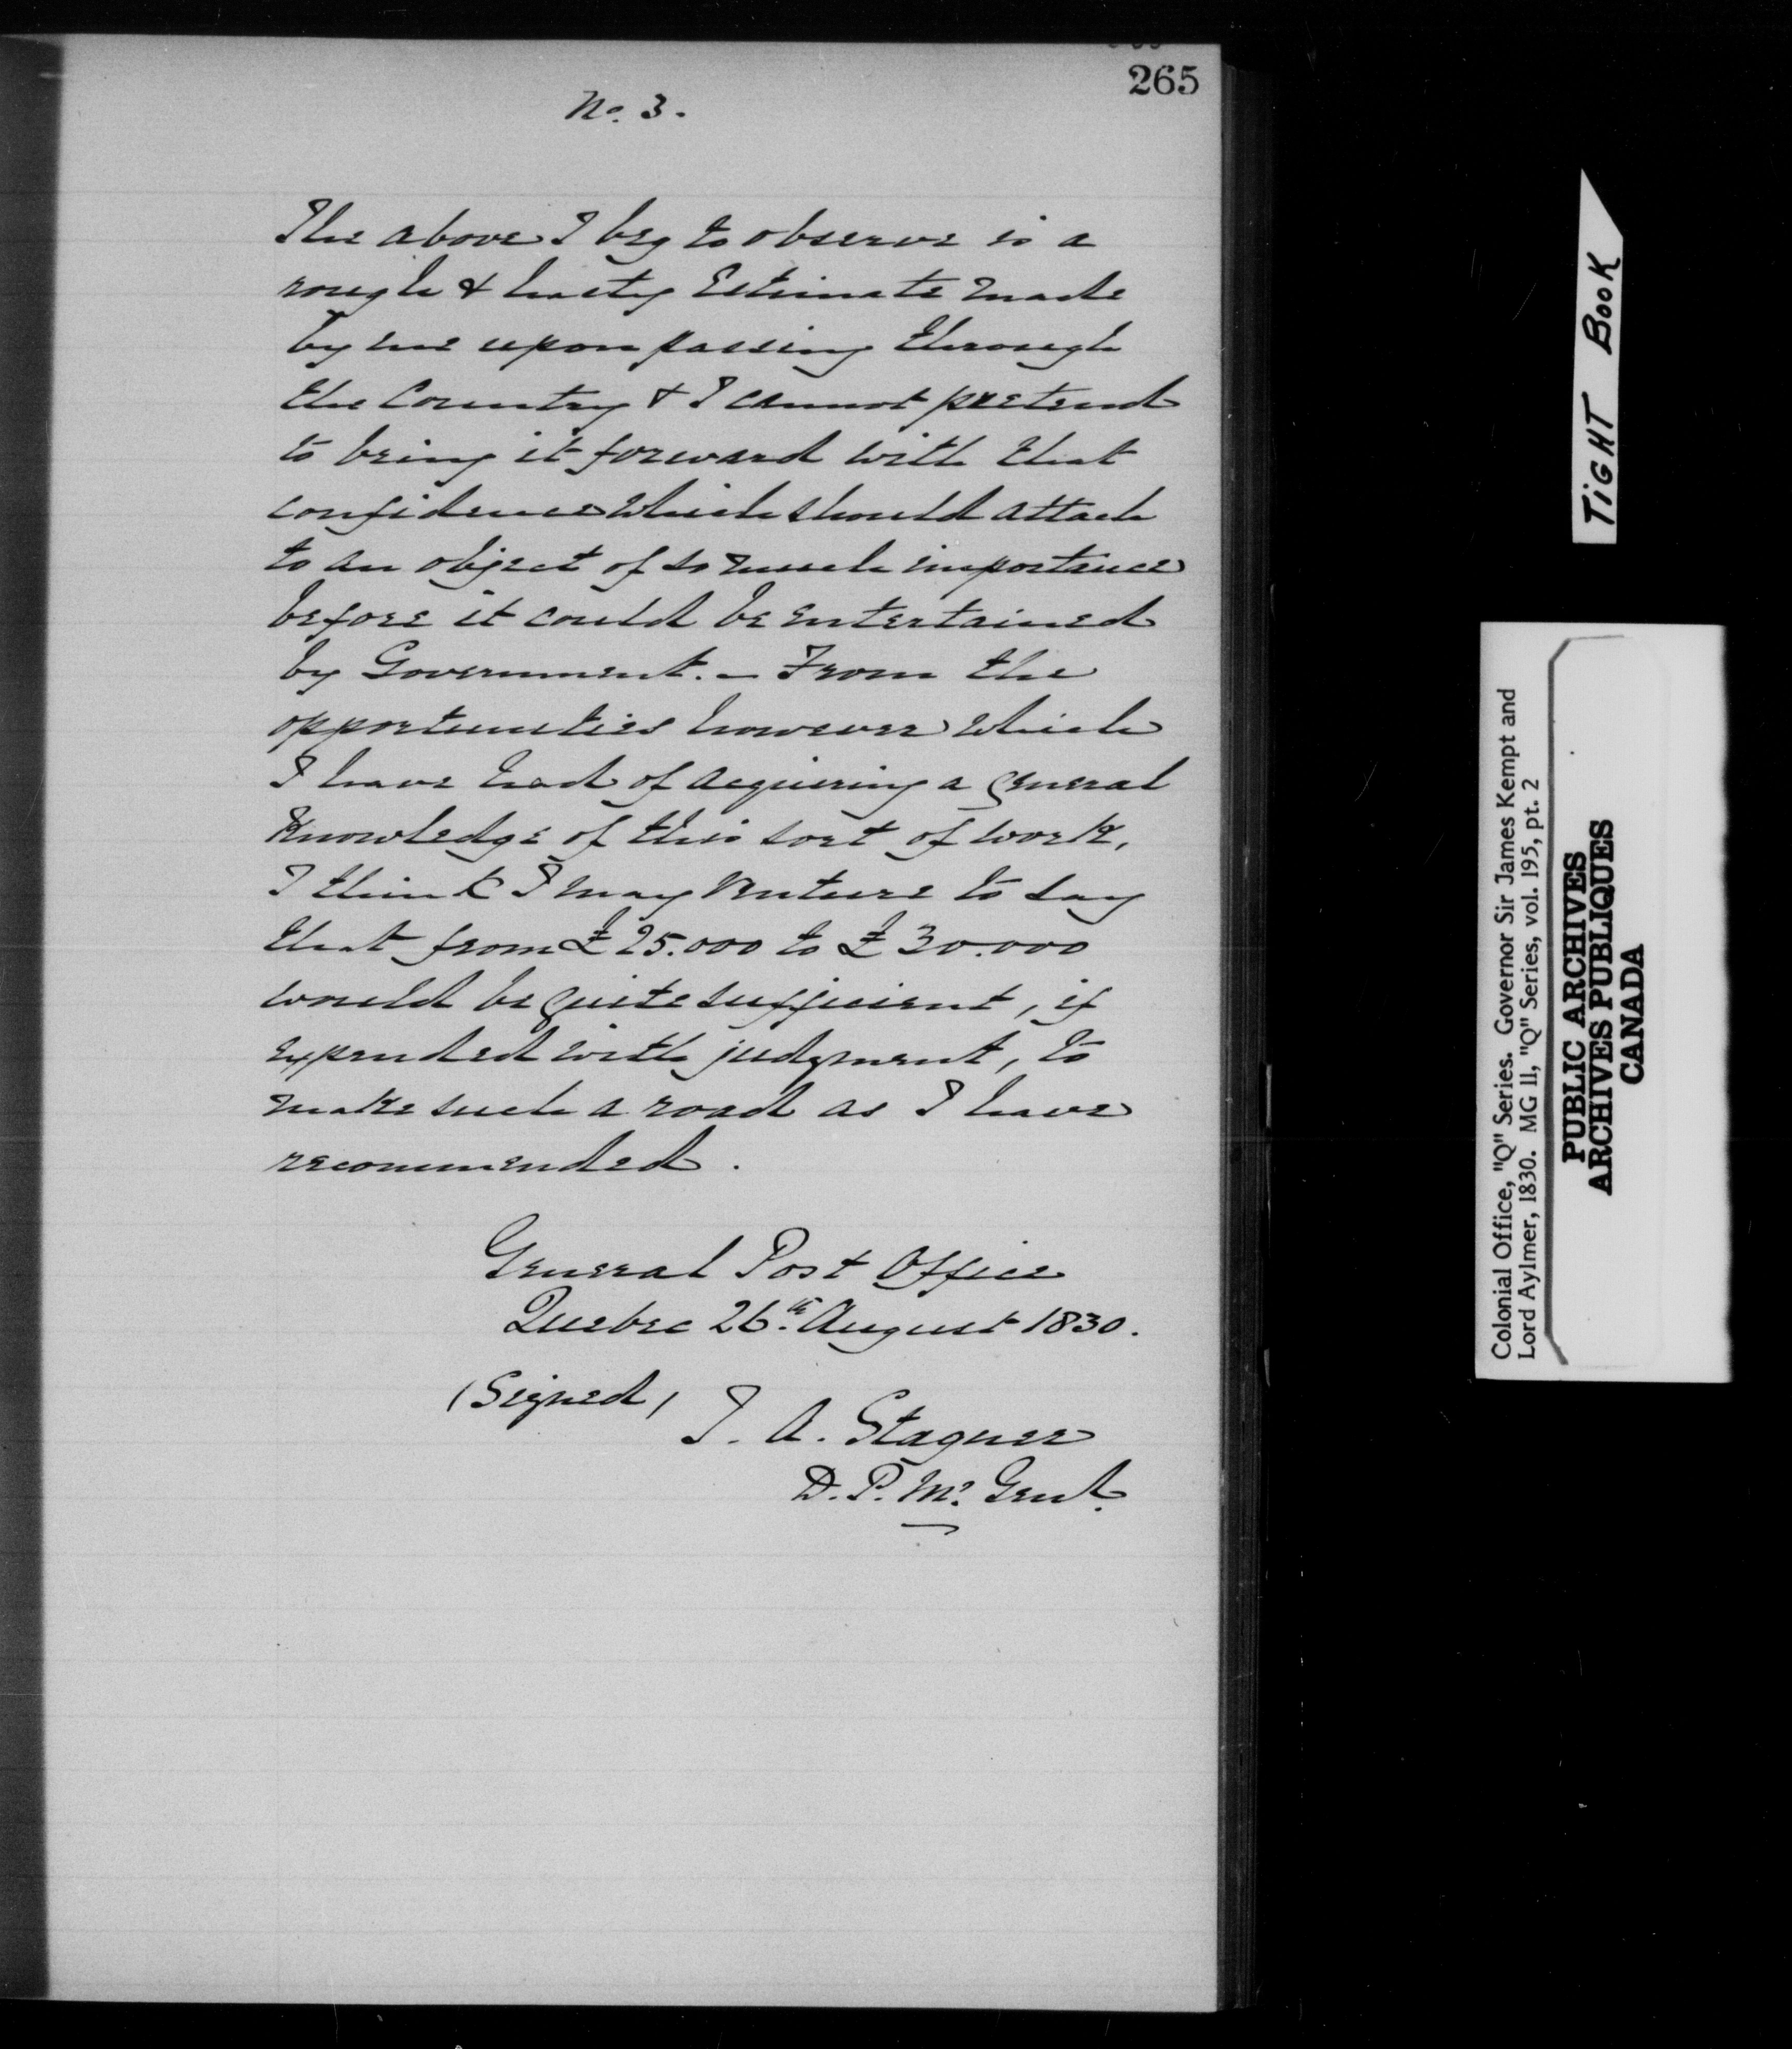 265
No. 3.
The above I beg to observe is a
rough & hasty Estimate made
by me upon passing through
the Country & I cannot pretend
to bring it forward with that
confidence which should attach
to an object of so much importance
before it could be entertained
by Government. – From the
opportunities however which
I have had of acquiring a general
Knowledge of this sort of work,
I think I may venture to say
that from £25.000 to £30.000
would be quite sufficient, if
expended with judgment, to
make such a road as I have
recommended.
General Post Office
Quebec 26th August 1830.
(Signed)
T. A. Stayner
D. P. Mr. Genl.
TIGHT BOOK
Colonial Office, "Q" Series. Governor Sir James Kempt and
Lord Aylmer, 1830. MG 11, "Q" Series, vol. 195, pt. 2
PUBLIC ARCHIVES
ARCHIVES PUBLIQUES
CANADA